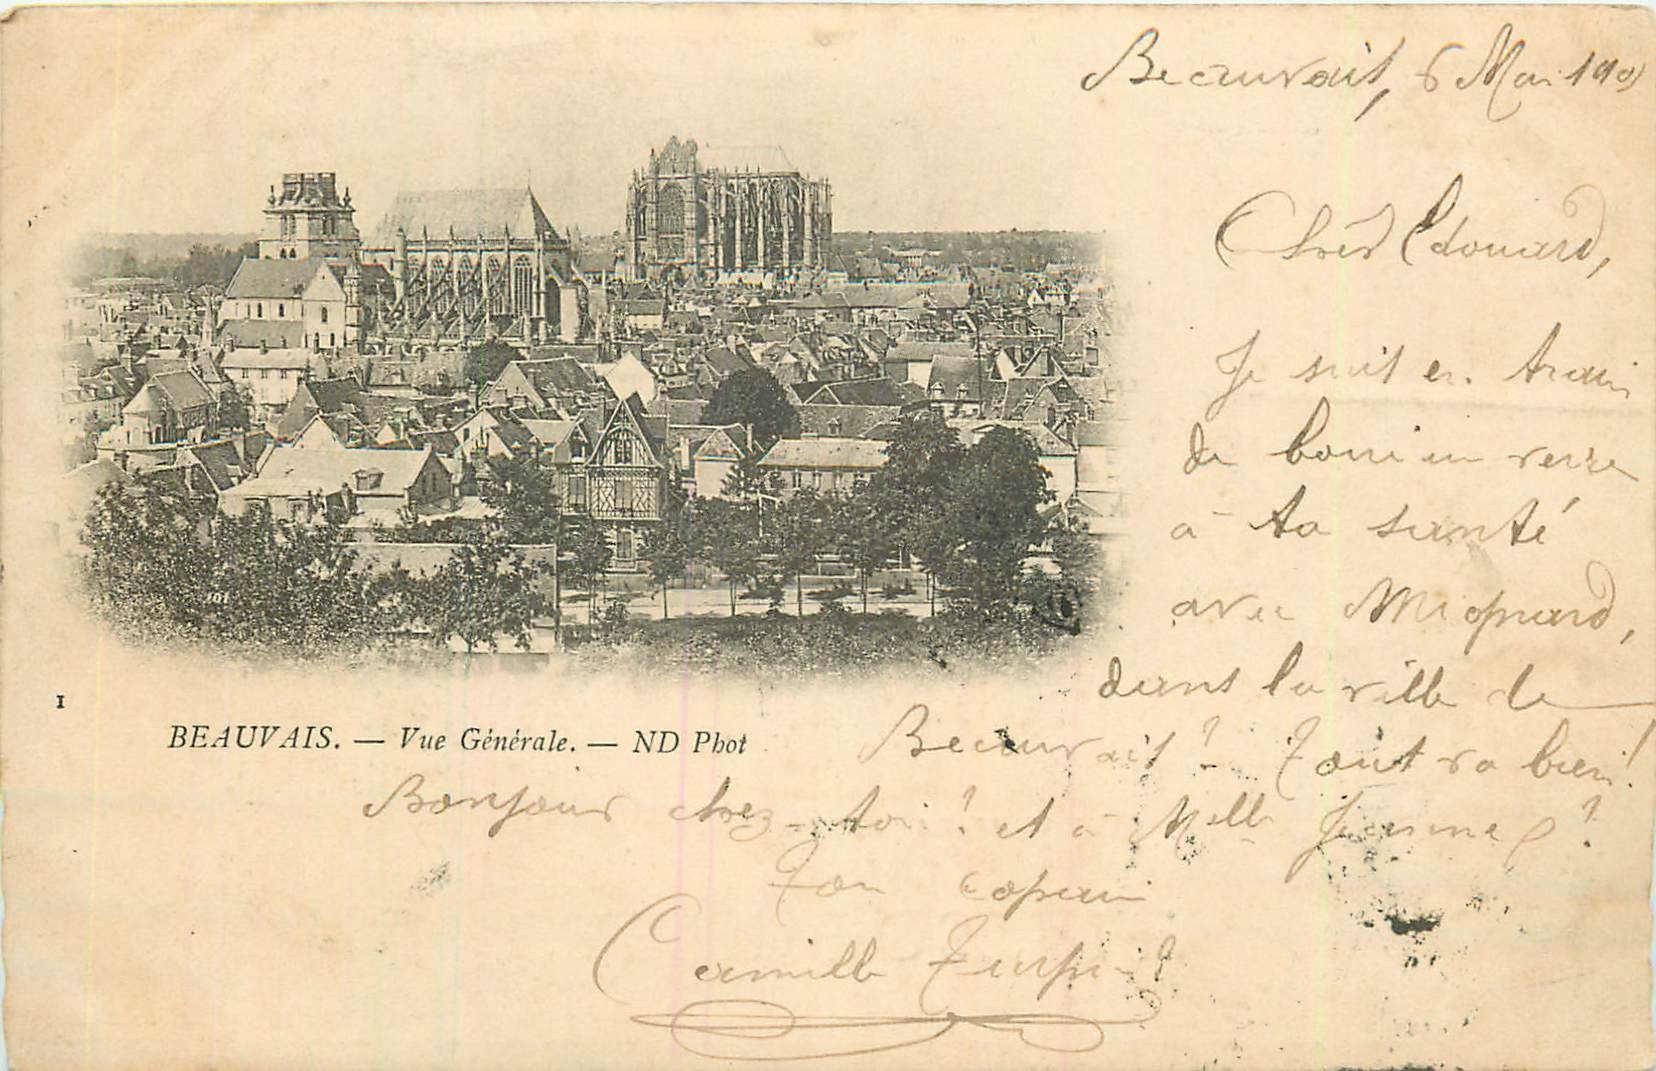 Beauvais, 6 Mai 190
Cher Edouard,
Je suis en train
de boire un verre
à ta santé
avec Mignard,
dans la ville de
Beauvais! Tout va bien!
Bonjour chez-toi! et à Melle Jeanne ?
Ton copain
Camille Turpin
1
BEAUVAIS. — Vue Générale. — ND Phot
101